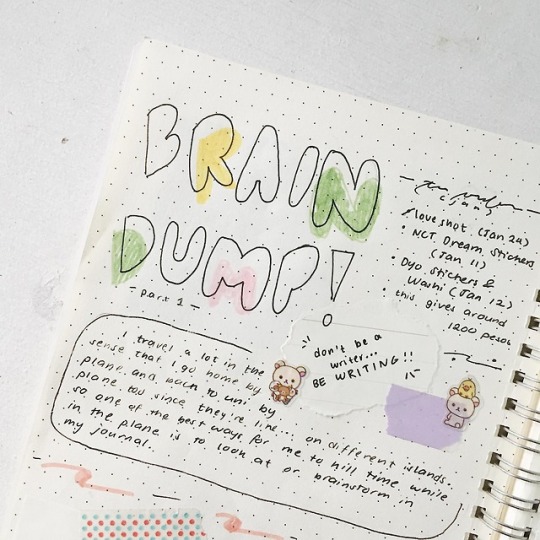 BRAIN
DUMP!
- part 1 -
(Jan)
love shot (Jan 24)
• NCT Dream Stickers
(Jan 11)
• Dyo Stickers &
Washi (Jan 12)
• this gives around
1200 pesos
don't be a
writer...
BE WRITING!!
I travel a lot in the
sense that I go home by
plane and back to uni by
plane too since they're like... on different islands.
so one of the best ways for me to kill time while
in the plane is to look at or brainstorm in
my journal.